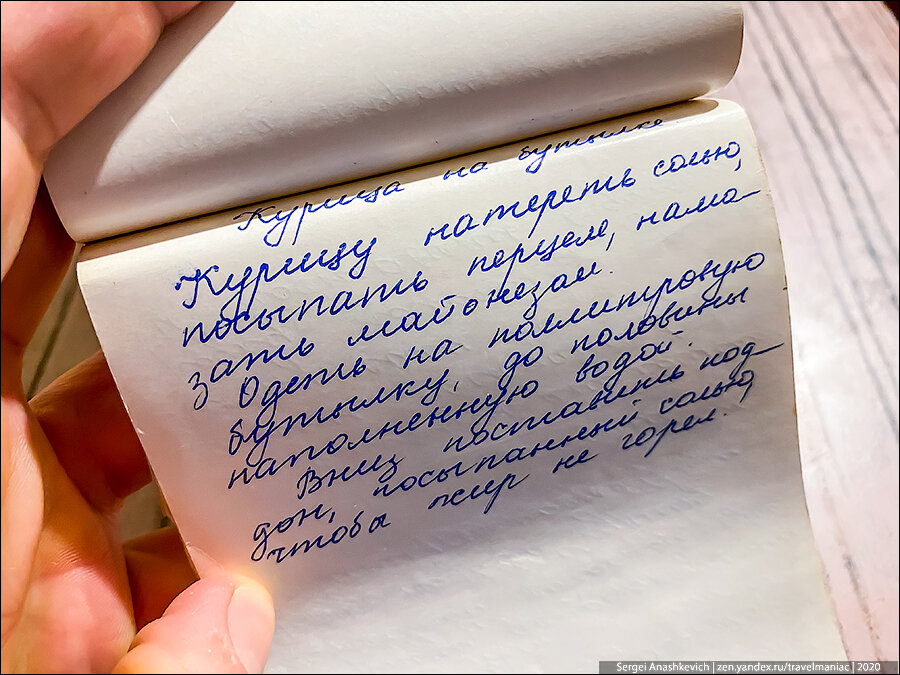 Курица на бутылке.
Курицу натереть солью,
посыпать перцем, нама-
зать майонезом.
Одеть на поллитровую
бутылку, до половины
наполненную водой.
Вниз поставить под-
дон, посыпанный солью,
чтобы жир не горел.
Sergei Anashkevich | zen.yandex.ru/travelmaniac | 2020